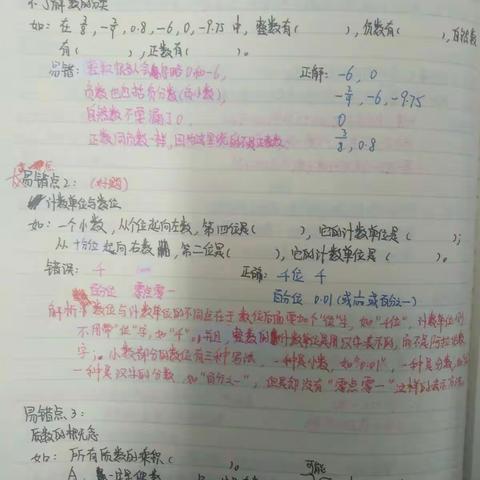 不了解数的分类
如：在 3/8，-3/4，0.8，-6，0，-9.75 中，整数有（　　），负数有（　　），自然数
有（　　），正数有（　　）。
易错：整数 0和-6， 正解：-6，0
负数也包括负分数(负小数)， -3/4，-6，-9.75
自然数不要漏了0， 0
正数同负数一样， 3/8，0.8
易错点2：
计数单位与数位
如：一个小数，从个位起向左数，第四位是（　　），它的计数单位是（　　）；
从十分位起向右数，第二位是（　　），它的计数单位是（　　）。
错误：千 正确：千位 千
百分位 零点零一 百分位 0.01(或 百分之一)
解析：数位与计数单位的不同点在于数位后面要加个“位”字，如“千位”，计数单位
不用带“位”字，如“千”，并且，整数的计数单位是用汉字表示的，而不是阿拉伯数
字；小数部分的数位有三种写法，一种是小数，如“0.01”，一种是分数，
一种是汉字的分数，如“百分之一”，但是却没有“零点零一”这样的表示方法。
易错点3：
质数的概念
如：所有质数的乘积（　　）。
A、一定是